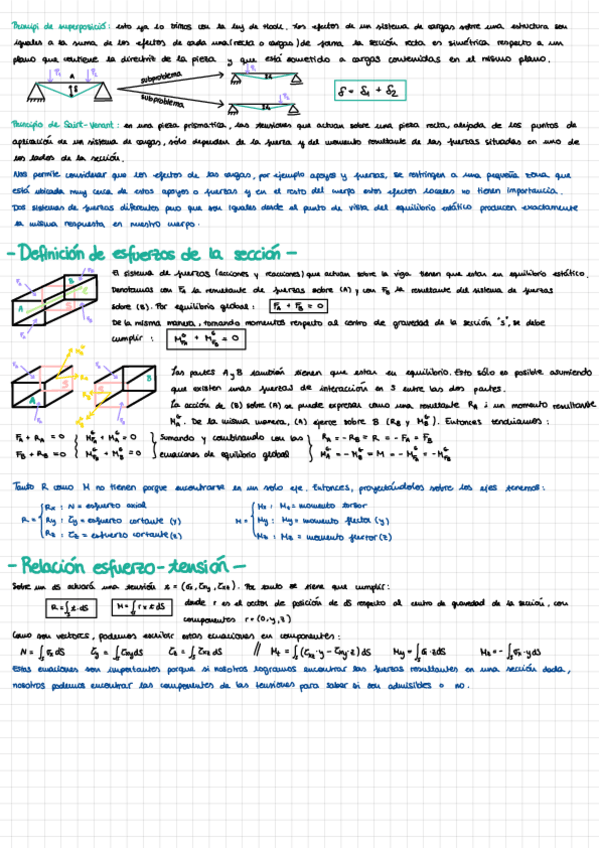 Principi de superposició: esto ya lo vimos con la ley de Hook. Los efectos de un sistema de cargas sobre una estructura son
iguales a la suma de los efectos de cada una (recta o cargas) de forma la sección recta es simétrica respecto a un
plano que contiene la directriz de la pieza y que está sometido a cargas contenidas en el mismo plano.
A
subproblema
subproblema
δ = δ₁ + δ₂
Principio de Saint-Venant: en una pieza prismatica, las tensiones que actuan sobre una pieza recta, alejada de los puntos de
aplicación de un sistema de cargas, sólo dependen de la fuerza y del momento resultante de las fuerzas situadas en uno de
los lados de la sección.
Nos permite considerar que los efectos de las cargas, por ejemplo apoyos y fuerzas, se restringen a una pequeña zona que
está ubicada muy cerca de estos apoyos o fuerzas y en el resto del cuerpo estos efectos locales no tienen importancia.
Dos sistemas de fuerzas diferentes pero que son iguales desde el punto de vista del equilibrio estático producen exactamente
la misma respuesta en nuestro cuerpo.
- Definición de esfuerzos de la sección -
El sistema de fuerzas (acciones y reacciones) que actuan sobre la viga tienen que estar en equilibrio estático.
Denotamos con F_A la resultante de fuerzas sobre (A) y con F_B la resultante del sistema de fuerzas
sobre (B). Por equilibrio global: F_A + F_B = 0
De la misma manera, tomando momentos respecto al centro de gravedad de la sección "S", se debe
cumplir: M^G_FA + M^G_FB = 0
A
B
S
Las partes A y B también tienen que estar en equilibrio. Esto sólo es posible asumiendo
que existen unas fuerzas de interacción en S entre las dos partes.
La acción de (B) sobre (A) se puede expresar como una resultante R_A i un momento resultante
M^G_A. De la misma manera, (A) ejerce sobre B (R_B y M^G_B). Entonces tendriamos:
F_A + R_A = 0 { M^G_FA + M^G_A = 0 } Sumando y combinando con las { R_A = -R_B = R = -F_A = F_B
F_B + R_B = 0 { M^G_FB + M^G_B = 0 } ecuaciones de equilibrio global { M^G_A = -M^G_B = M = -M^G_FA = -M^G_FB
Tanto R como M no tienen porque encontrarse en un solo eje. Entonces, proyectándolos sobre los ejes tenemos:
Rx : N = esfuerzo axial
Mx : Mt = momento torsor
R = { Ry : τy = esfuerzo cortante (y)
M = { My : My = momento flector (y)
Rz : τz = esfuerzo cortante (z)
Mz : Mz = momento flector (z)
- Relación esfuerzo-tensión -
Sobre un ds actuará una tensión t = (σx, τxy, τxz). Por tanto se tiene que cumplir:
R = ∫ t·dS M = ∫ r x t dS donde r es el vector de posición de dS respecto al centro de gravedad de la sección, con
componentes r = (0, y, z)
Como son vectores, podemos escribir estas ecuaciones en componentes:
N = ∫ σx dS τy = ∫ τxy dS τz = ∫ τxz dS // Mt = ∫ (τxz·y - τxy·z) dS My = ∫ σx·z dS Mz = -∫ σx·y dS
Estas ecuaciones son importantes porque si nosotros logramos encontrar las fuerzas resultantes en una sección dada,
nosotros podemos encontrar las componentes de las tensiones para saber si son admisibles o no.